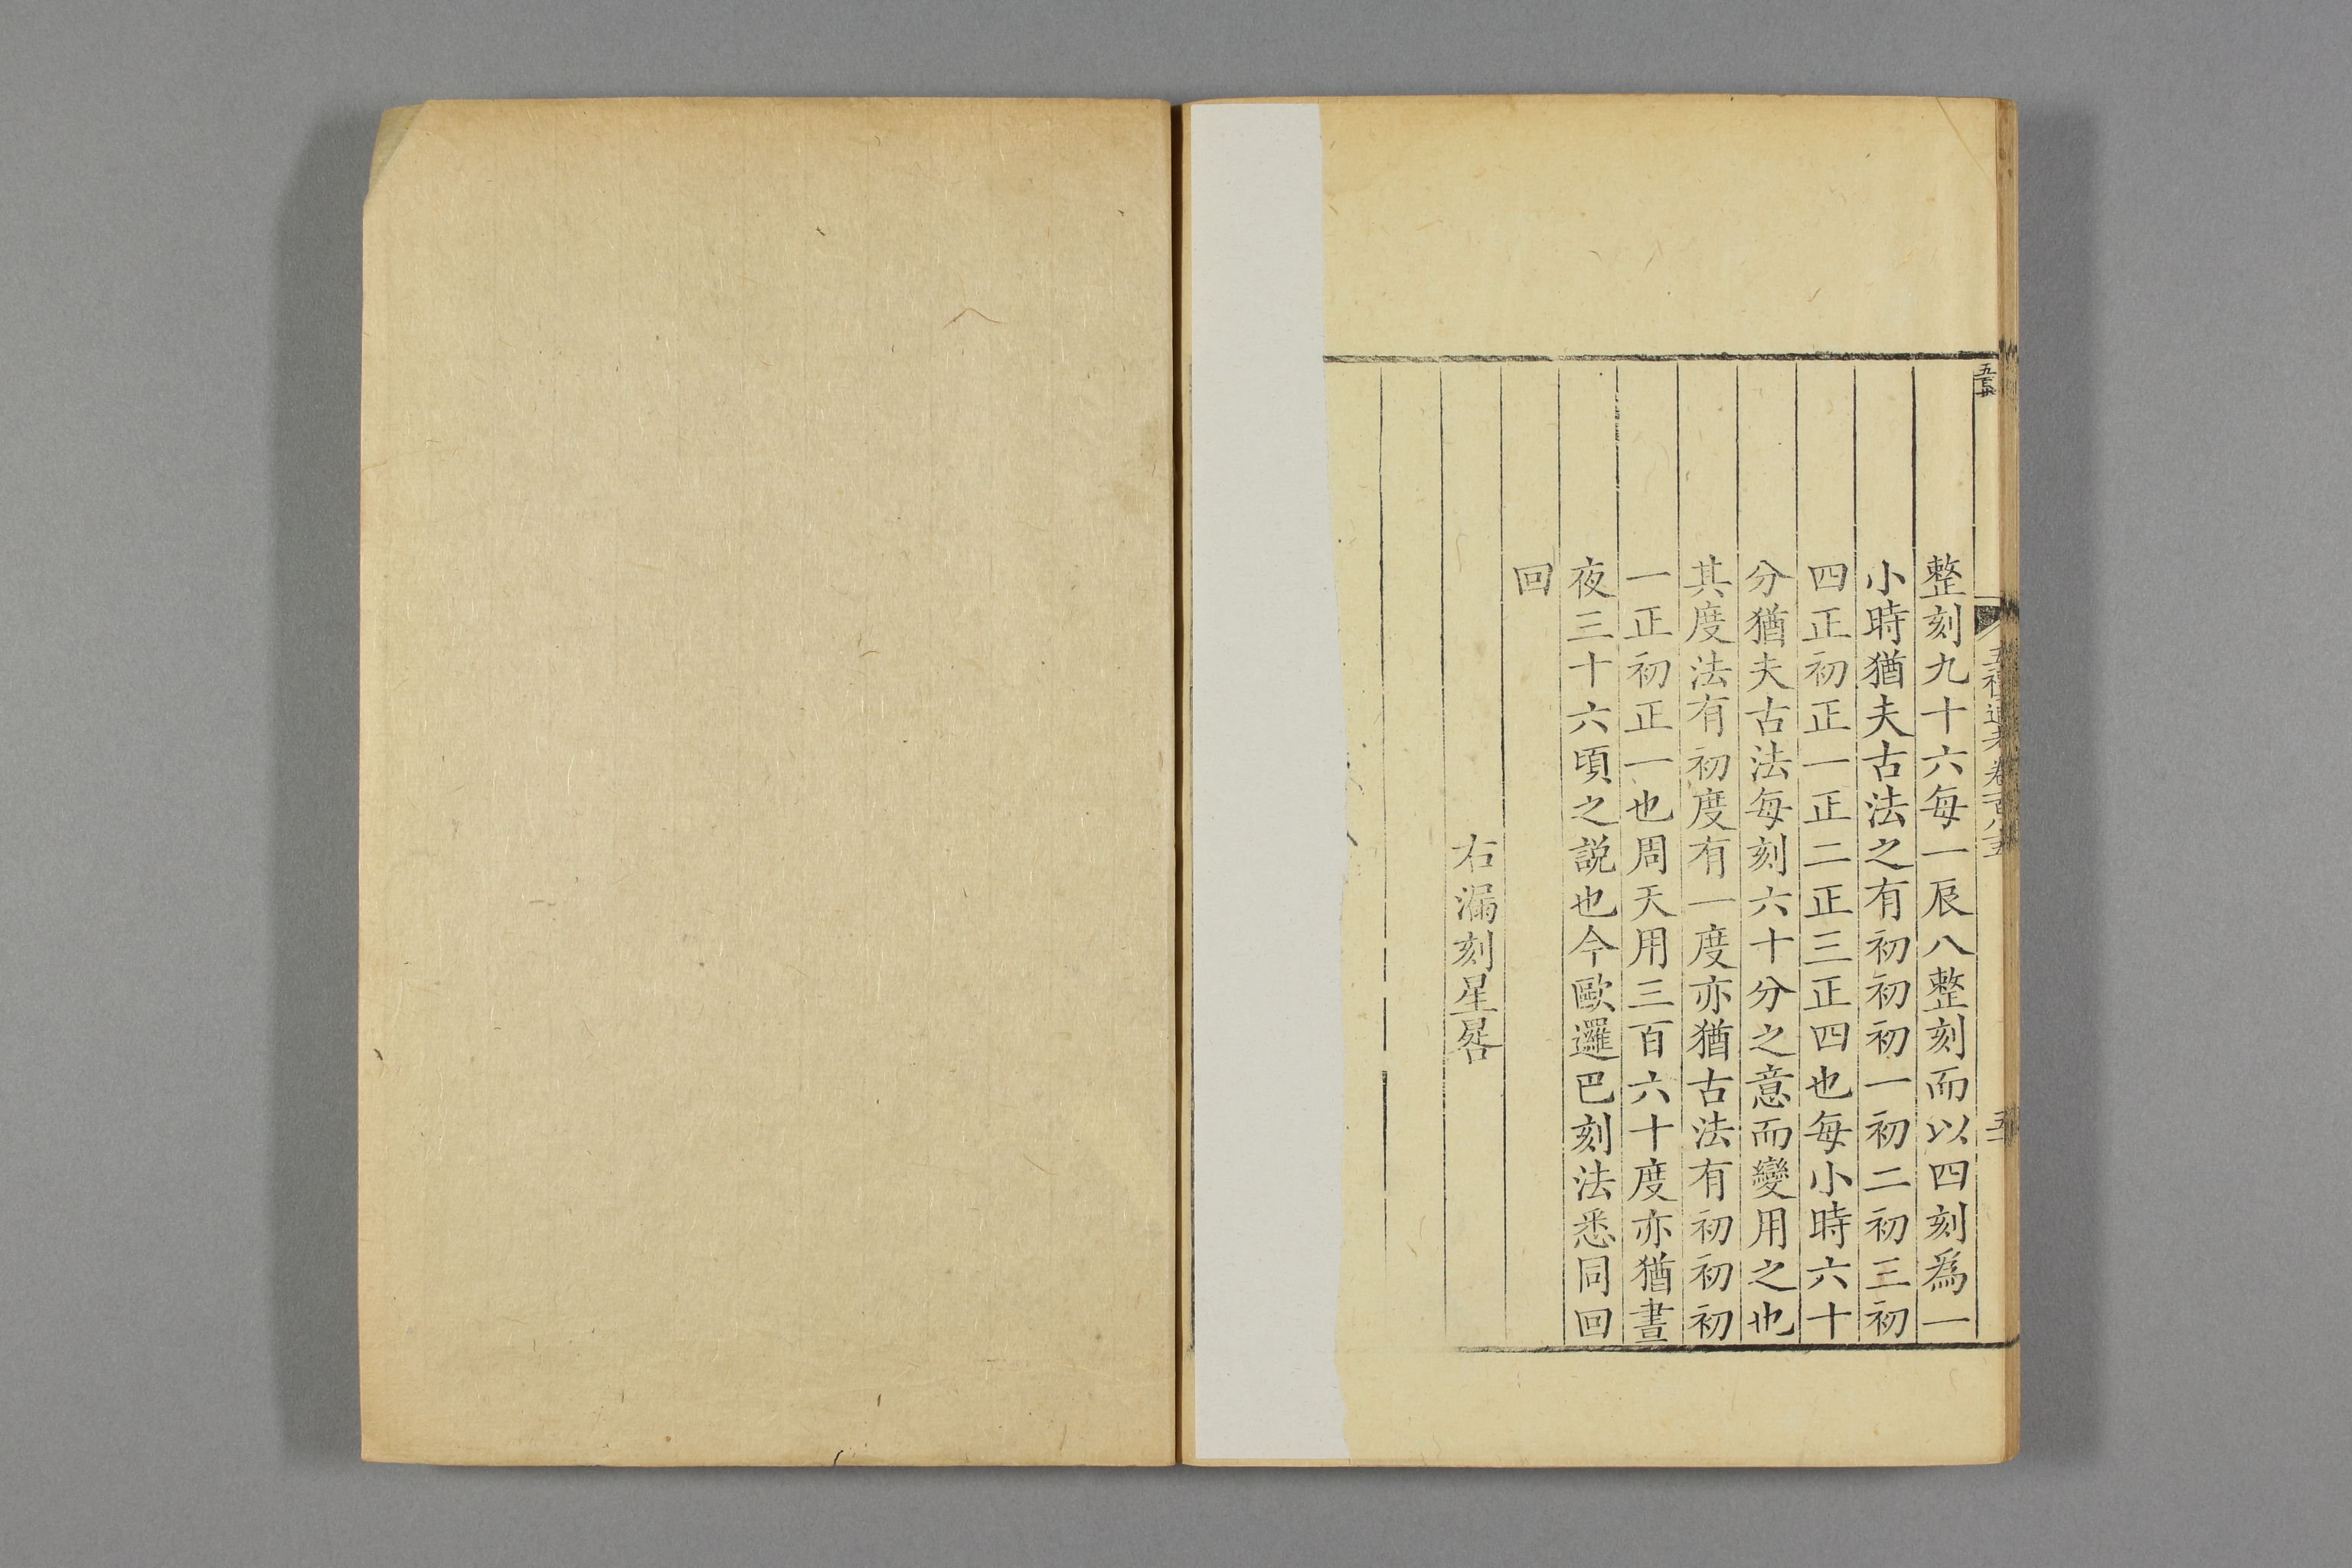 五禮通考 卷百八五
整刻九十六每一辰八整刻而以四刻爲一
小時猶夫古法之有初初初一初二初三初
四正初正一正二正三正四也每小時六十
分猶夫古法每刻六十分之意而變用之也
其度法有初度有一度亦猶古法有初初初
一正初正一也周天用三百六十度亦猶晝
夜三十六頃之説也今歐邏巴刻法悉同回
回
右漏刻星晷